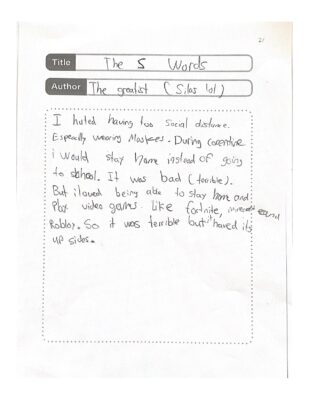 21
Title The 5 Words
Author The greatist (Silas lol)
I hated having too social distance.
Especally wearing Maskes. During corentine
i would stay home instead of going
to school. It was bad (terible).
But iloved being able to stay home and
Play video games like fortnite, minecraft and
Roblox. So it was terrible but haved it's
up sides.